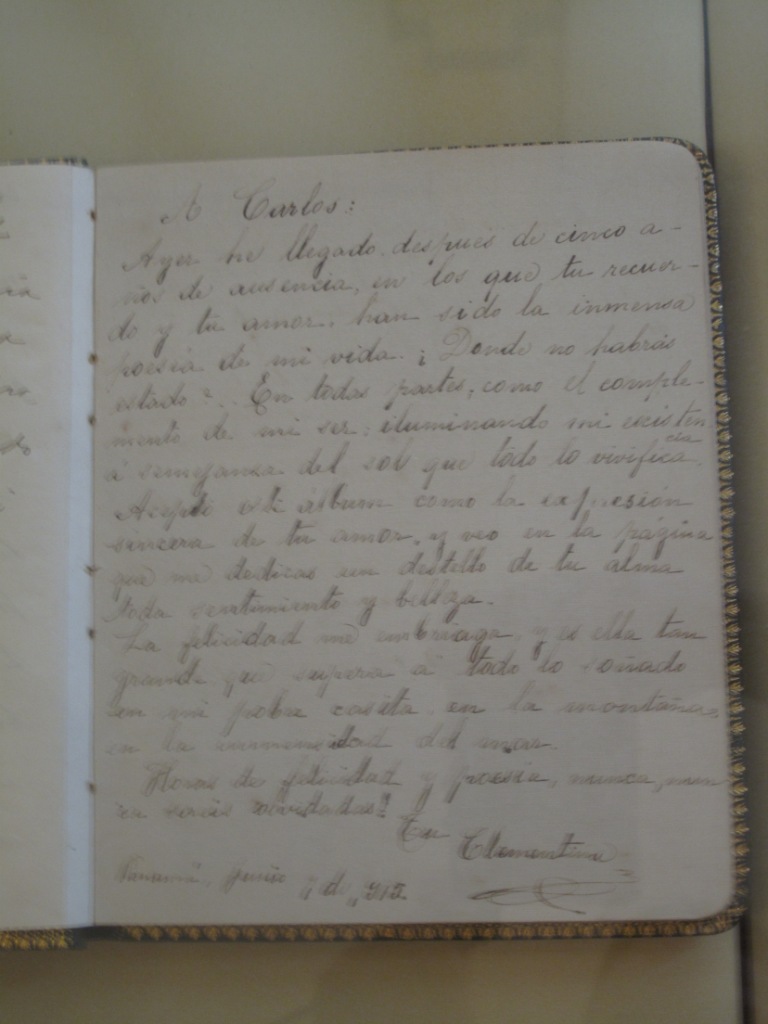 A Carlos:
Ayer he llegado, despues de cinco a-
ños de ausencia, en los que tu recuer-
do y tu amor, han sido la inmensa
poesia de mi vida. ¿Donde no habrás
estado? En todas partes, como el comple-
mento de mi ser: iluminando mi existen
cia
á semejanza del sol que todo lo vivifica.
Acepto este álbum como la expresión
sincera de tu amor, y veo en la página
que me dedicas un destello de tu alma
toda sentimiento y belleza.
La felicidad me embriaga, y es ella tan
grande que supera á todo lo soñado
en mi pobre casita, en la montaña,
en la inmensidad del mar.
Horas de felicidad y poesia, nunca, nun
ca seréis olvidadas!
Tu
Clementina
Panamá, Junio 7 de